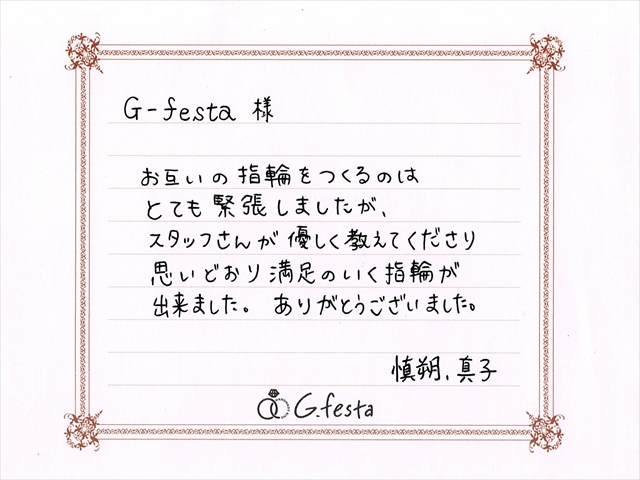 G-festa 様
お互いの指輪をつくるのは
とても緊張しましたが、
スタッフさんが優しく教えてくださり
思いどおり満足のいく指輪が
出来ました。 ありがとうございました。
慎朔、真子
G.festa